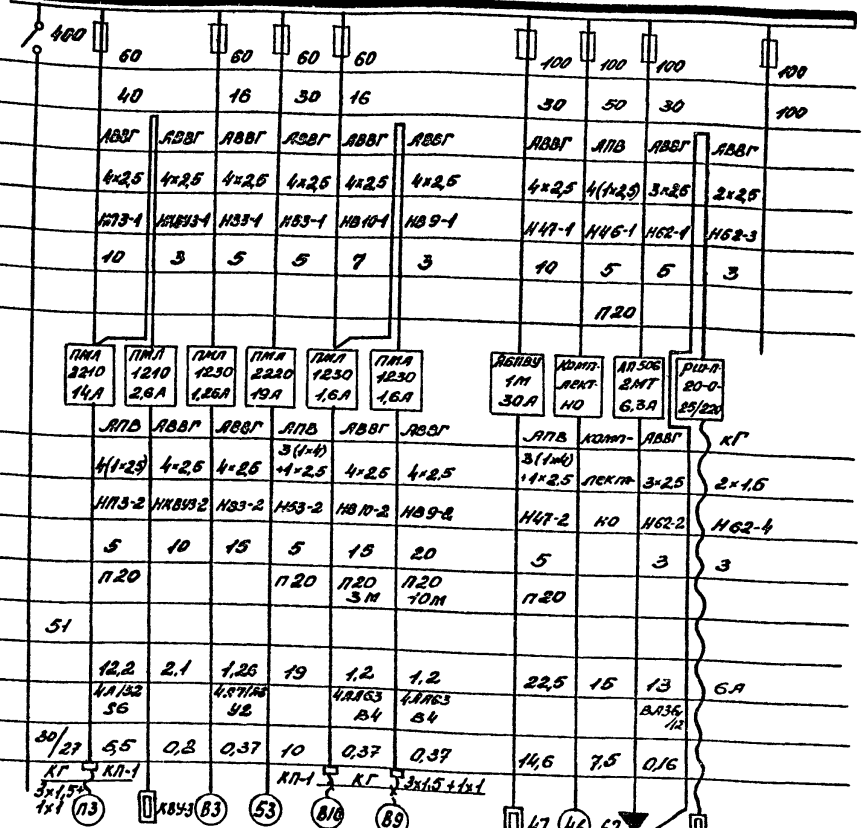 400 60 60 60 60 100 100 100 100
40 16 30 16 30 50 30 100
АВВГ АВВГ АВВГ АВВГ АВВГ АВВГ АВВГ АПВ АВВГ АВВГ
4×2,5 4×2,5 4×2,5 4×2,5 4×2,5 4×2,5 4×2,5 4(1×2,5) 3×2,5 2×2,5
НП3-1 НКВУ3-1 НВ3-1 Н53-1 НВ10-1 НВ9-1 Н47-1 Н46-1 Н62-1 Н62-3
10 3 5 5 7 3 10 5 5 3
П20
ПМЛ ПМЛ ПМЛ ПМЛ ПМЛ ПМЛ ЯБПВУ КОМП- АП50Б РШ-П-
2210 1210 1230 2220 1230 1230 1М ЛЕКТ- 2МТ 20-0-
14А 2,6А 1,26А 19А 1,6А 1,6А 30А НО 6,3А 25/220
АПВ АВВГ АВВГ АПВ АВВГ АВВГ АПВ КОМП- АВВГ КГ
4(1×2,5) 4×2,5 4×2,5 3(1×4)+1×2,5 4×2,5 4×2,5 3(1×4)+1×2,5 ЛЕКТ- 3×2,5 2×1,5
НП3-2 НКВУ3-2 НВ3-2 Н53-2 НВ10-2 НВ9-2 Н47-2 НО Н62-2 Н62-4
5 10 15 5 15 20 5 3 3
П20 П20 П20 3м П20 10м П20
51
12,2 2,1 1,26 19 1,2 1,2 22,5 15 13 6А
4А132 S6 4АА63 В4 4АА63 В4
30/27 5,5 0,2 0,37 10 0,37 0,37 14,6 7,5 0,16
КГ КП-1 КП-1 КГ 3×1,5+1×1
3×1,5+
1×1 П3 КВУ-3 В3 53 В10 В9 47 46 62